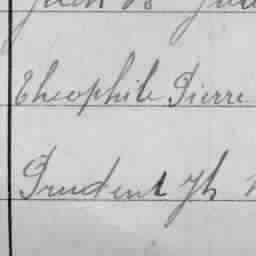 Theophile Pierre
Prudent Jh